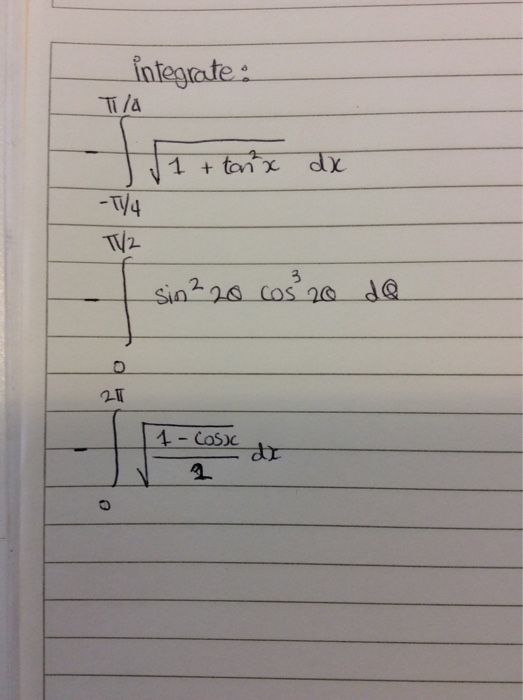 integrate:
- ∫_{-π/4}^{π/4} √(1 + tan²x) dx
- ∫_{0}^{π/2} sin² 2θ cos³ 2θ dθ
- ∫_{0}^{2π} √((1 - cosx)/2) dx